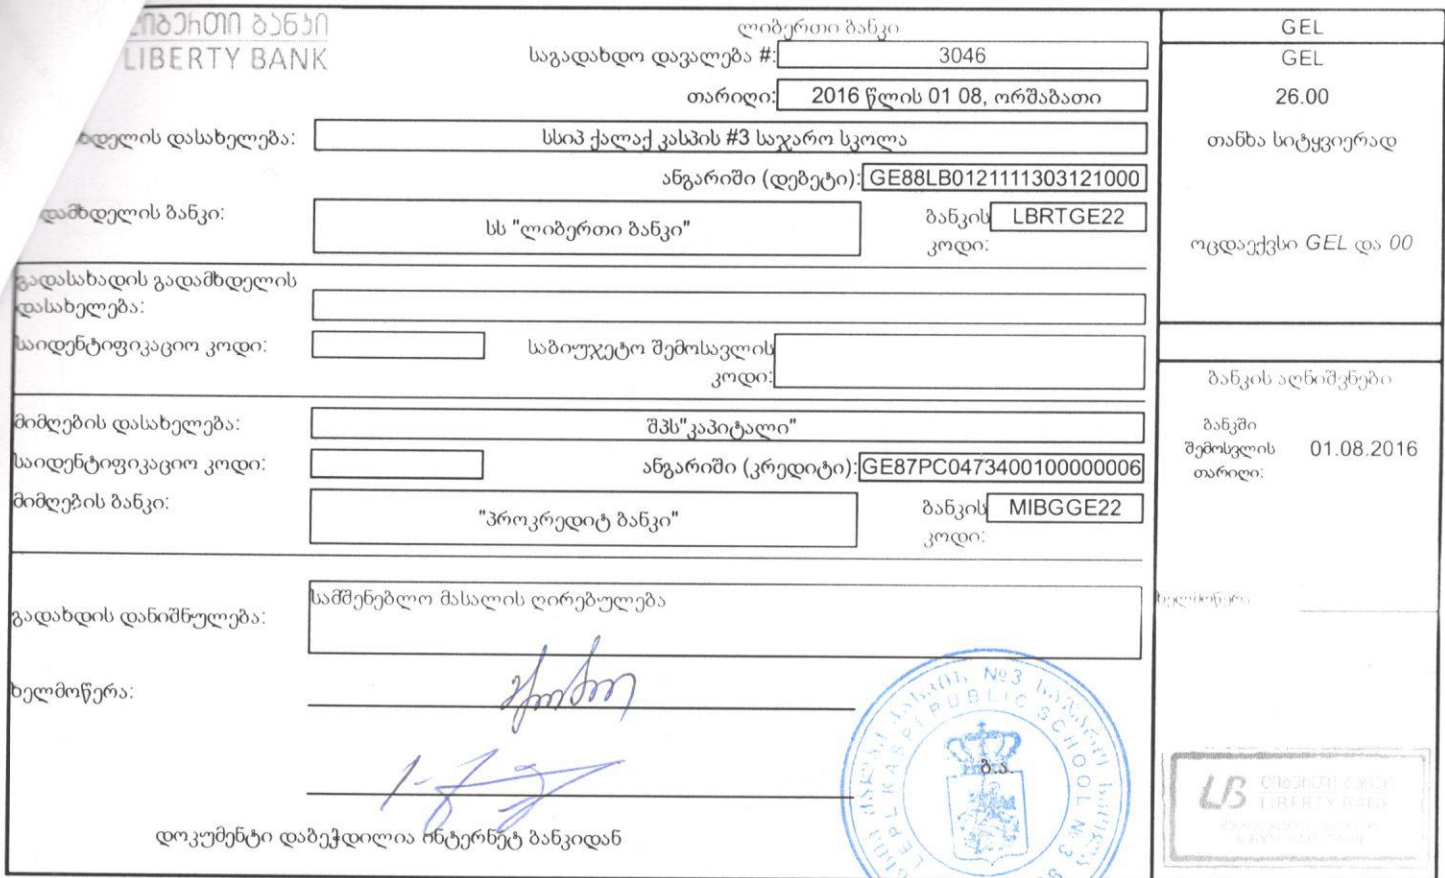 LIBERTY BANK
ლიბერთი ბანკი
საგადახდო დავალება #: 3046
თარიღი: 2016 წლის 01 08, ორშაბათი
დასახელება: სსიპ ქალაქ კასპის #3 საჯარო სკოლა
ანგარიში (დებეტი): GE88LB0121111303121000
ბანკი: სს "ლიბერთი ბანკი" ბანკის კოდი: LBRTGE22
გადასახადის გადამხდელის დასახელება:
საიდენტიფიკაციო კოდი: საბიუჯეტო შემოსავლის კოდი:
მიმღების დასახელება: შპს"კაპიტალი"
საიდენტიფიკაციო კოდი: ანგარიში (კრედიტი): GE87PC0473400100000006
მიმღების ბანკი: "პროკრედიტ ბანკი" ბანკის კოდი: MIBGGE22
გადახდის დანიშნულება: სამშენებლო მასალის ღირებულება
ხელმოწერა:
ბ.ა.
დოკუმენტი დაბეჭდილია ინტერნეტ ბანკიდან
GEL
GEL
26.00
თანხა სიტყვიერად
ოცდაექვსი GEL და 00
ბანკის აღნიშვნები
ბანკში შემოსვლის თარიღი: 01.08.2016
ხელმოწერა
№3
KASPI PUBLIC SCHOOL №3
LB
LIBERTY BANK